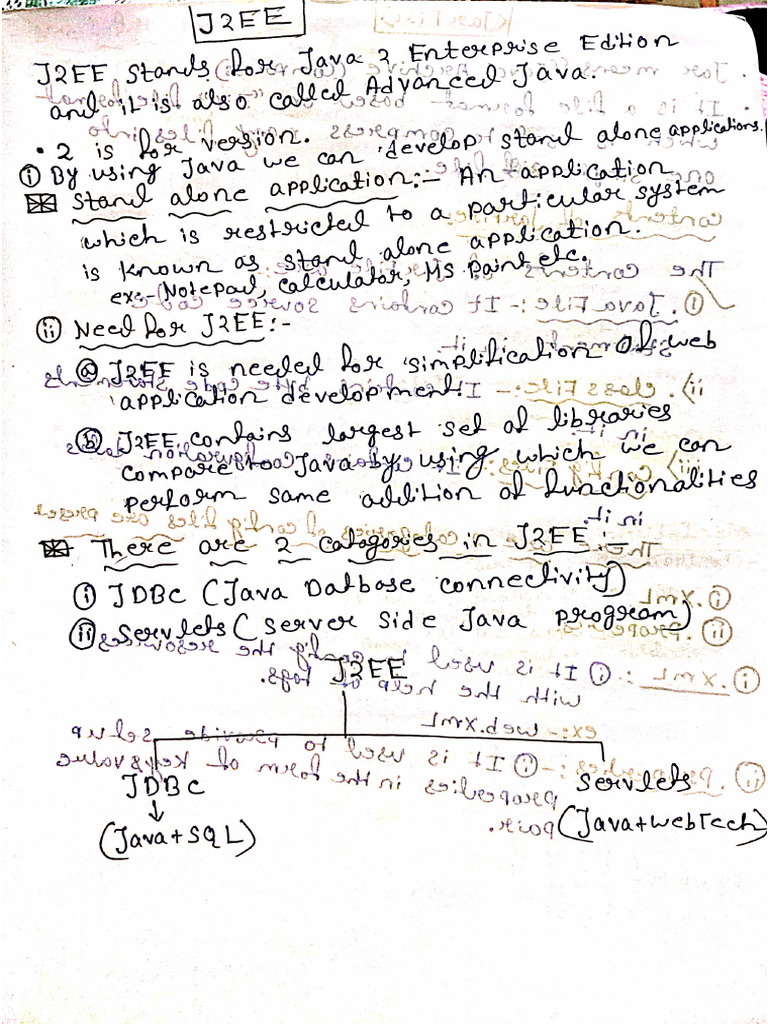 J2EE
J2EE stands for Java 2 Enterprise Edition
and it is also called Advanced Java.
• 2 is for version.
i By using Java we can develop stand alone applications.
Stand alone application:- An application
which is restricted to a particular system
is known as stand alone application.
ex:- (Notepad, calculator, MS paint etc.
ii Need for J2EE:-
a J2EE is needed for simplification of web
application development.
b J2EE contains largest set of libraries
compare to Java by using which we can
perform same addition of functionalities
There are 2 catogories in J2EE:-
i JDBC (Java Datbase connectivity)
ii Servlets (server side Java program)
J2EE
JDBC
Servlets
(Java+SQL)
(Java+webTech)